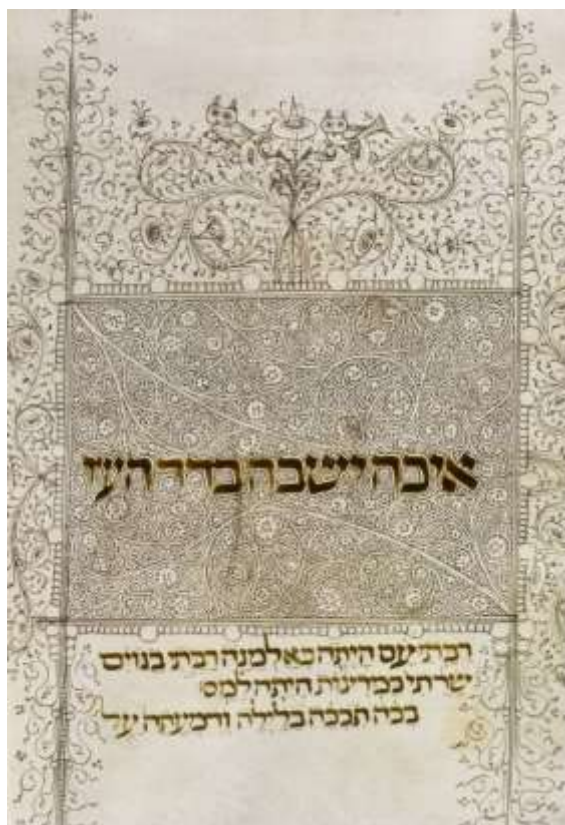 איכה יישבה בדד העי
רבתי עם היתה כאלמנה רבתי בגוים
שרתי במדינות היתה למס
בכה תבכה בלילה ודמעתה על